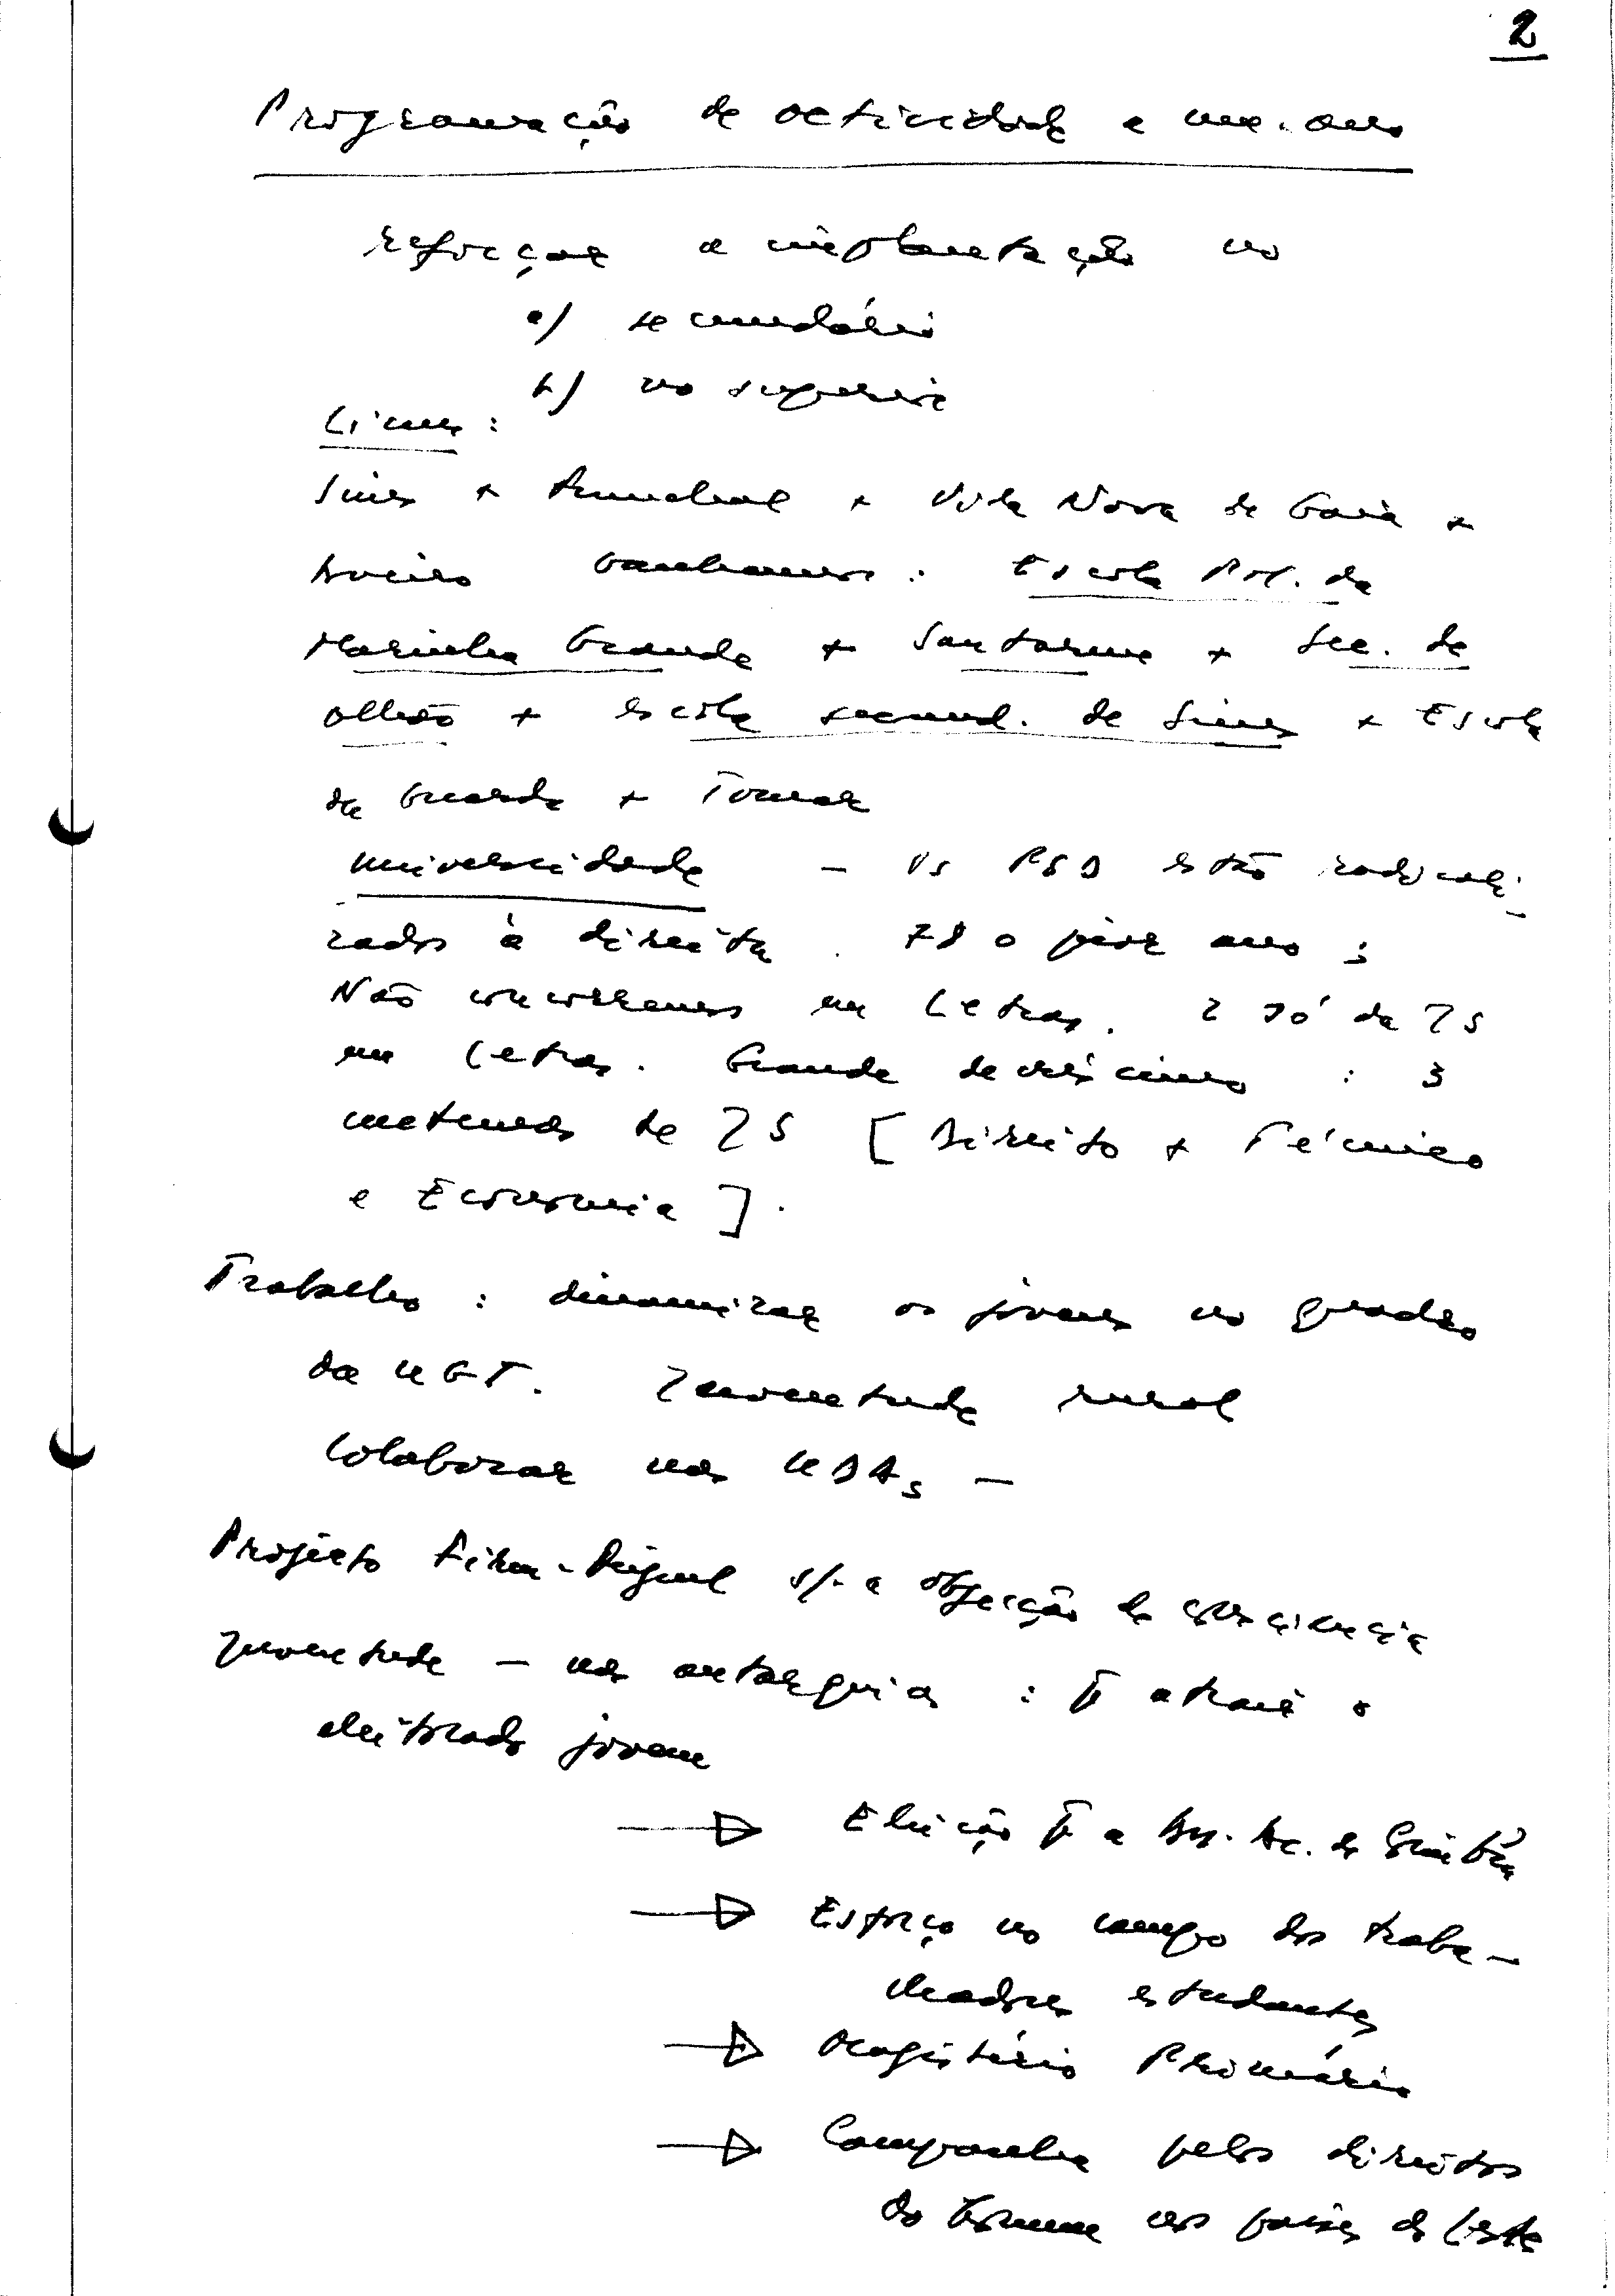 2
Programação de actividade e
reforçar a implantação no
a) secundário
b) no superior
Liceus :
Sines + Funchal + Vila Nova de Gaia +
Aveiro Ganhamos : Escola Pol. da
Marinha Grande + Santarém + Sec. de
Olhão + Escola secund. de Sines + Escola
da Guarda + Tomar
Universidade - Os PSD estão radicali-
zados à direita . 78 o pior ano ;
Não concorremos em Letras. 2 só da JS
em Letras. Grande : 3
de JS [ Direito + Técnico
e Economia ].
Trabalho : dinamizar os jovens no quadro
da UGT. Juventude rural
Colaborar nas
Projecto s/. a objecção de consciência
Juventude - nas autarquias : atrair o
eleitorado jovem
Eleição a Ass. Ac. de Coimbra
Esforço no campo dos traba-
lhadores estudantes
Magistério Primário
Campanha pelos direitos
do homem nos países de Leste